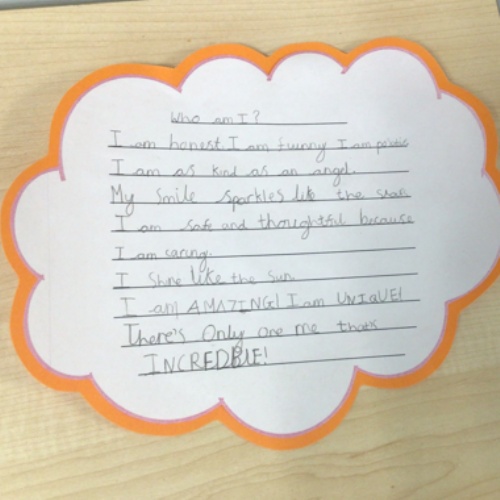 Who am I?
I am honest. I am funny I am
I am as kind as an angel.
My smile sparkles like the
I am safe and thoughtful because
I am caring.
I shine like the sun.
I am AMAZING! I am UNIQUE!
There's Only one me thats
INCREDBLE!